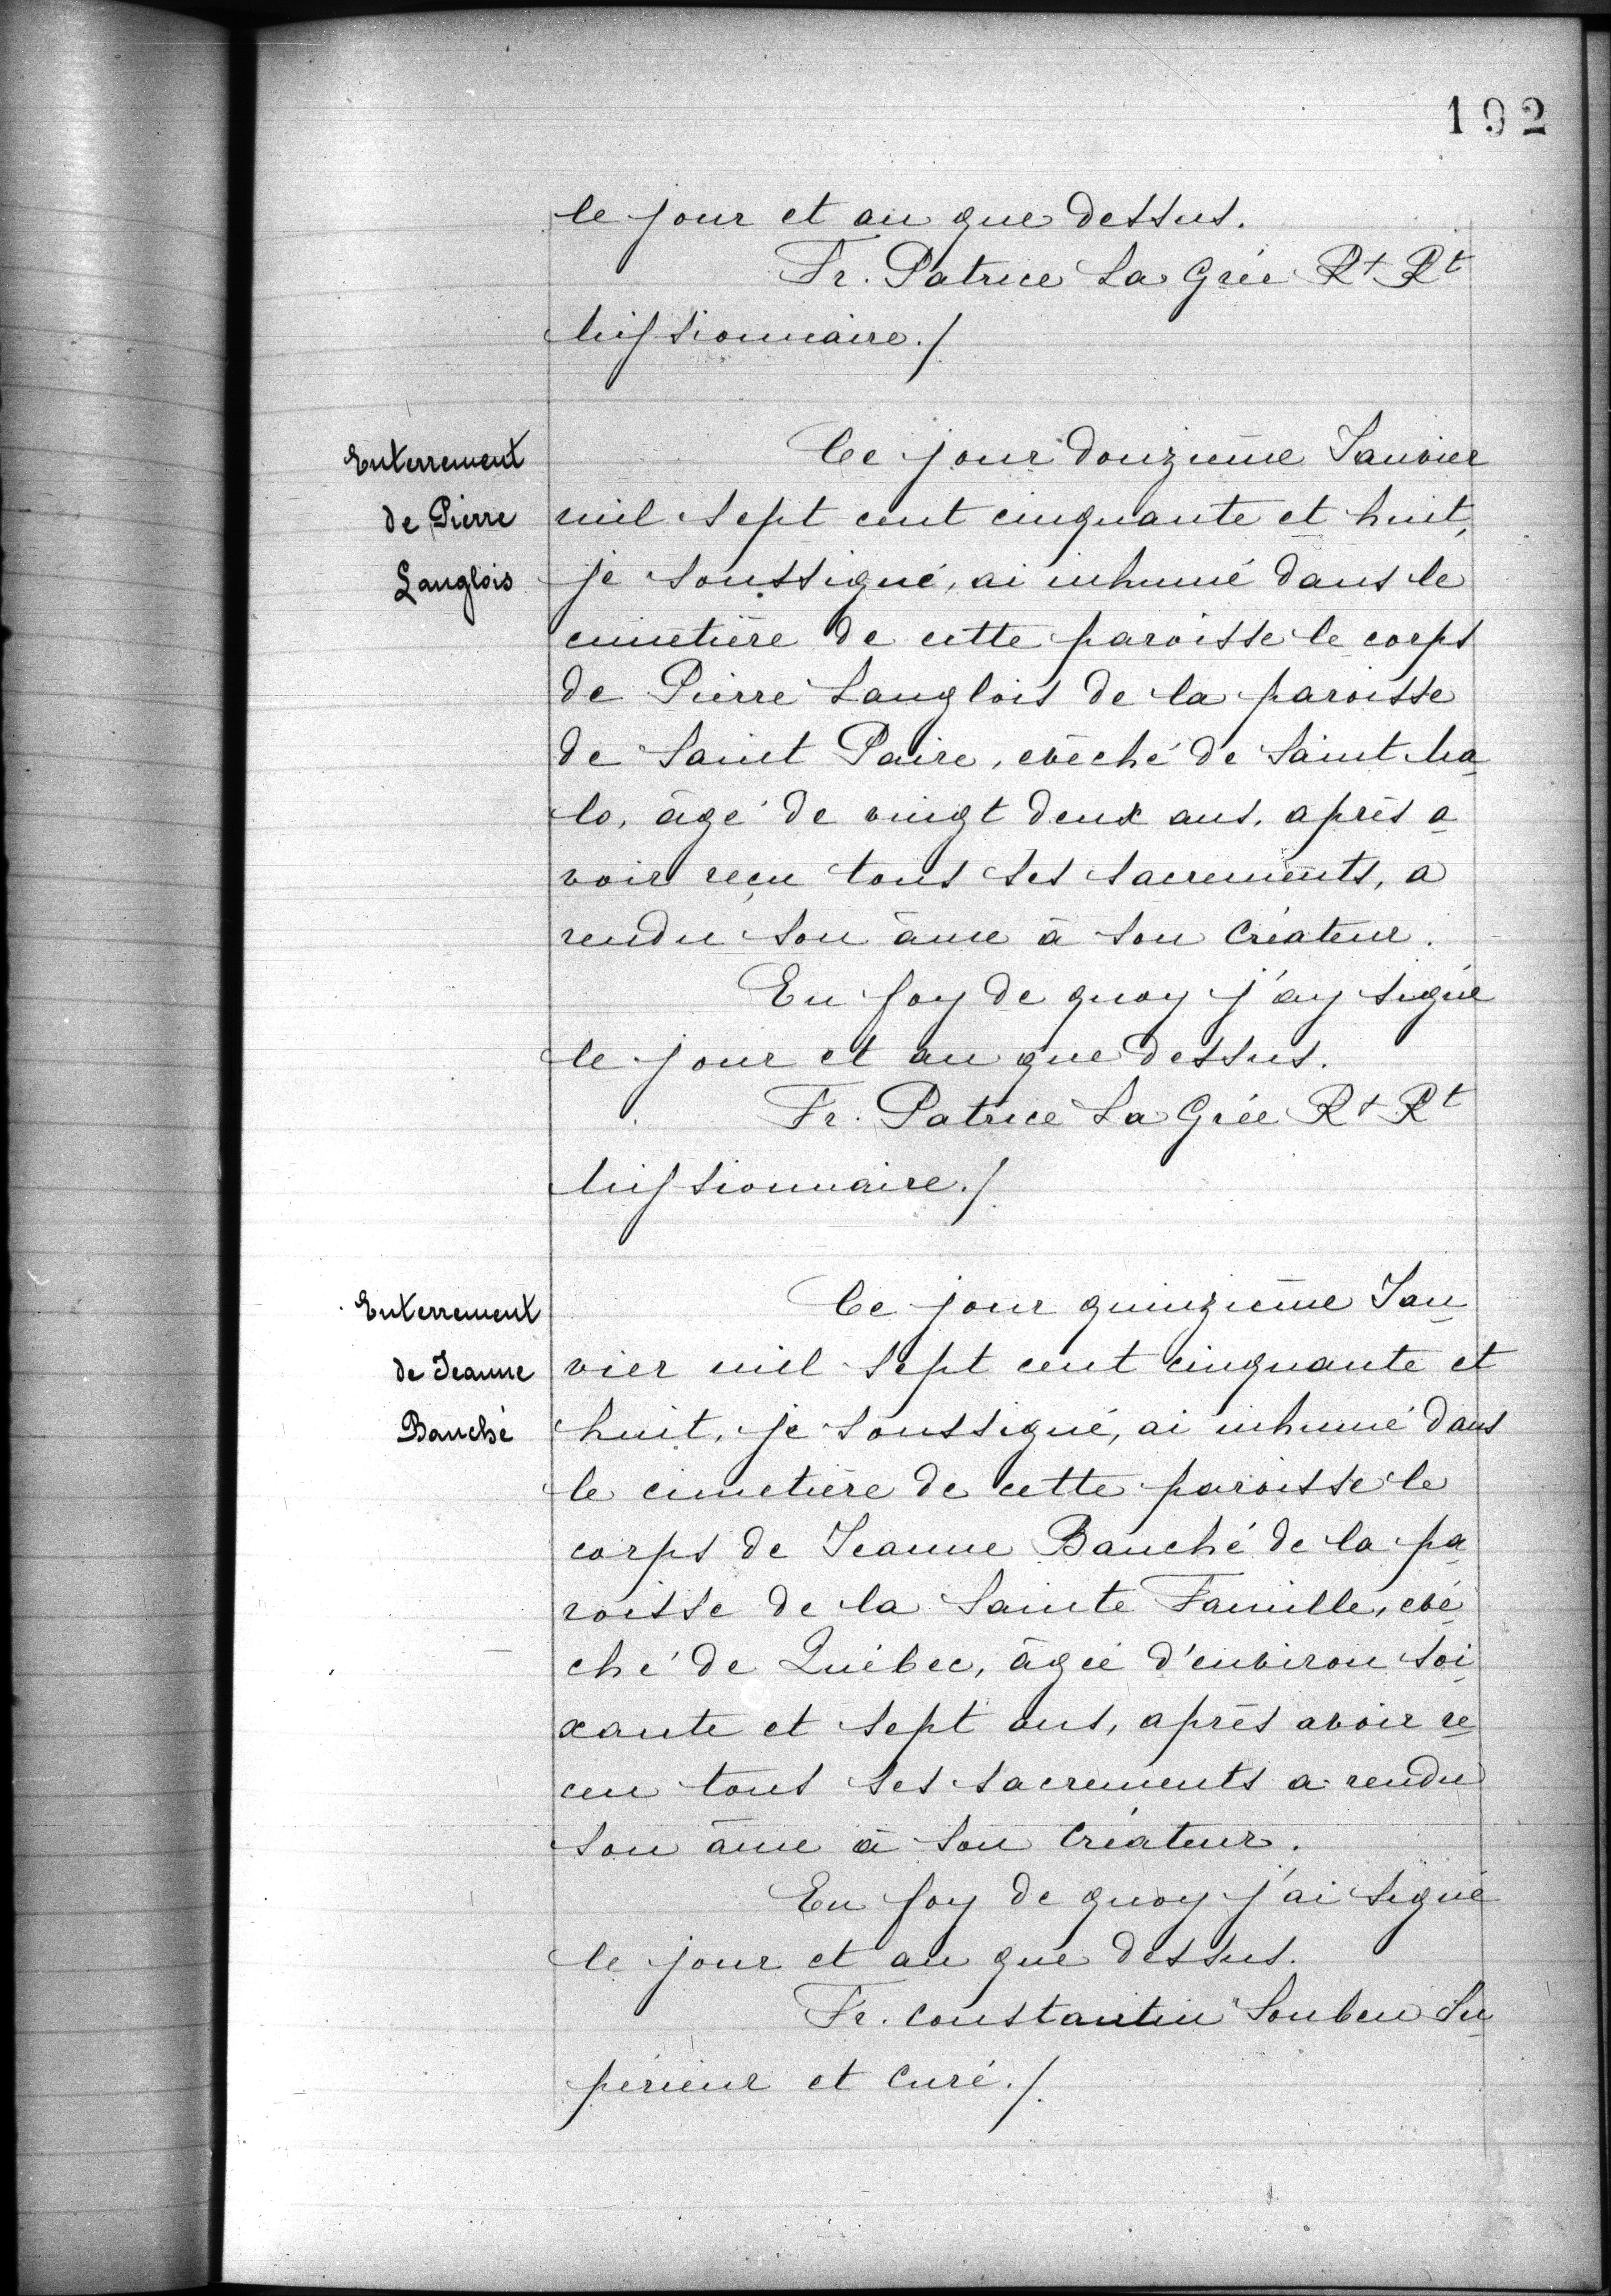 192
le jour et an que dessus.
Fr. Patrice La Grée Rt Rt
Missionnaire./.
Enterrement
de Pierre
Langlois
Ce jour douzième Janvier
mil sept cent cinquante et huit,
je soussigné, ai inhumé dans le
cimetière de cette paroisse le corps
de Pierre Langlois de la paroisse
de Saint Paire, evêché de Saint Ma
lo, âgé de vingt deux ans, après a
voir reçu tous ses sacrements, a
rendu son âme à son Créateur.
En foy de quoy j'ay signé
le jour et an que dessus.
Fr. Patrice La Grée Rt Rt
Missionnaire./.
Enterrement
de Jeanne
Bauché
Ce jour quinzième Jan
vier mil sept cent cinquante et
huit, je soussigné, ai inhumé dans
le cimetière de cette paroisse le
corps de Jeanne Bauché de la pa
roisse de la Sainte Famille, evê
ché de Québec, âgée d'environ soi
xante et sept ans, après avoir re
cu tous ses sacrements a rendu
son âme à son Créateur.
En foy de quoy j'ai signé
le jour et an que dessus.
Fr. Constantin Souben Su
périeur et Curé./.